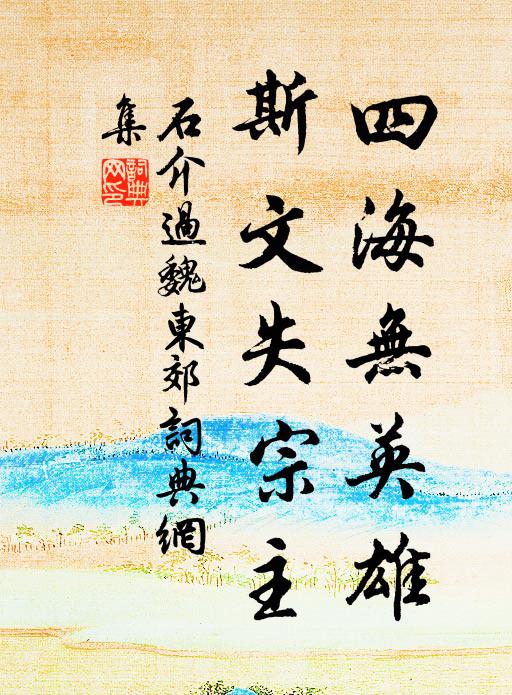 四海無英雄
斯文失宗主
石介過魏東郊詞典網
集
詞典
网印